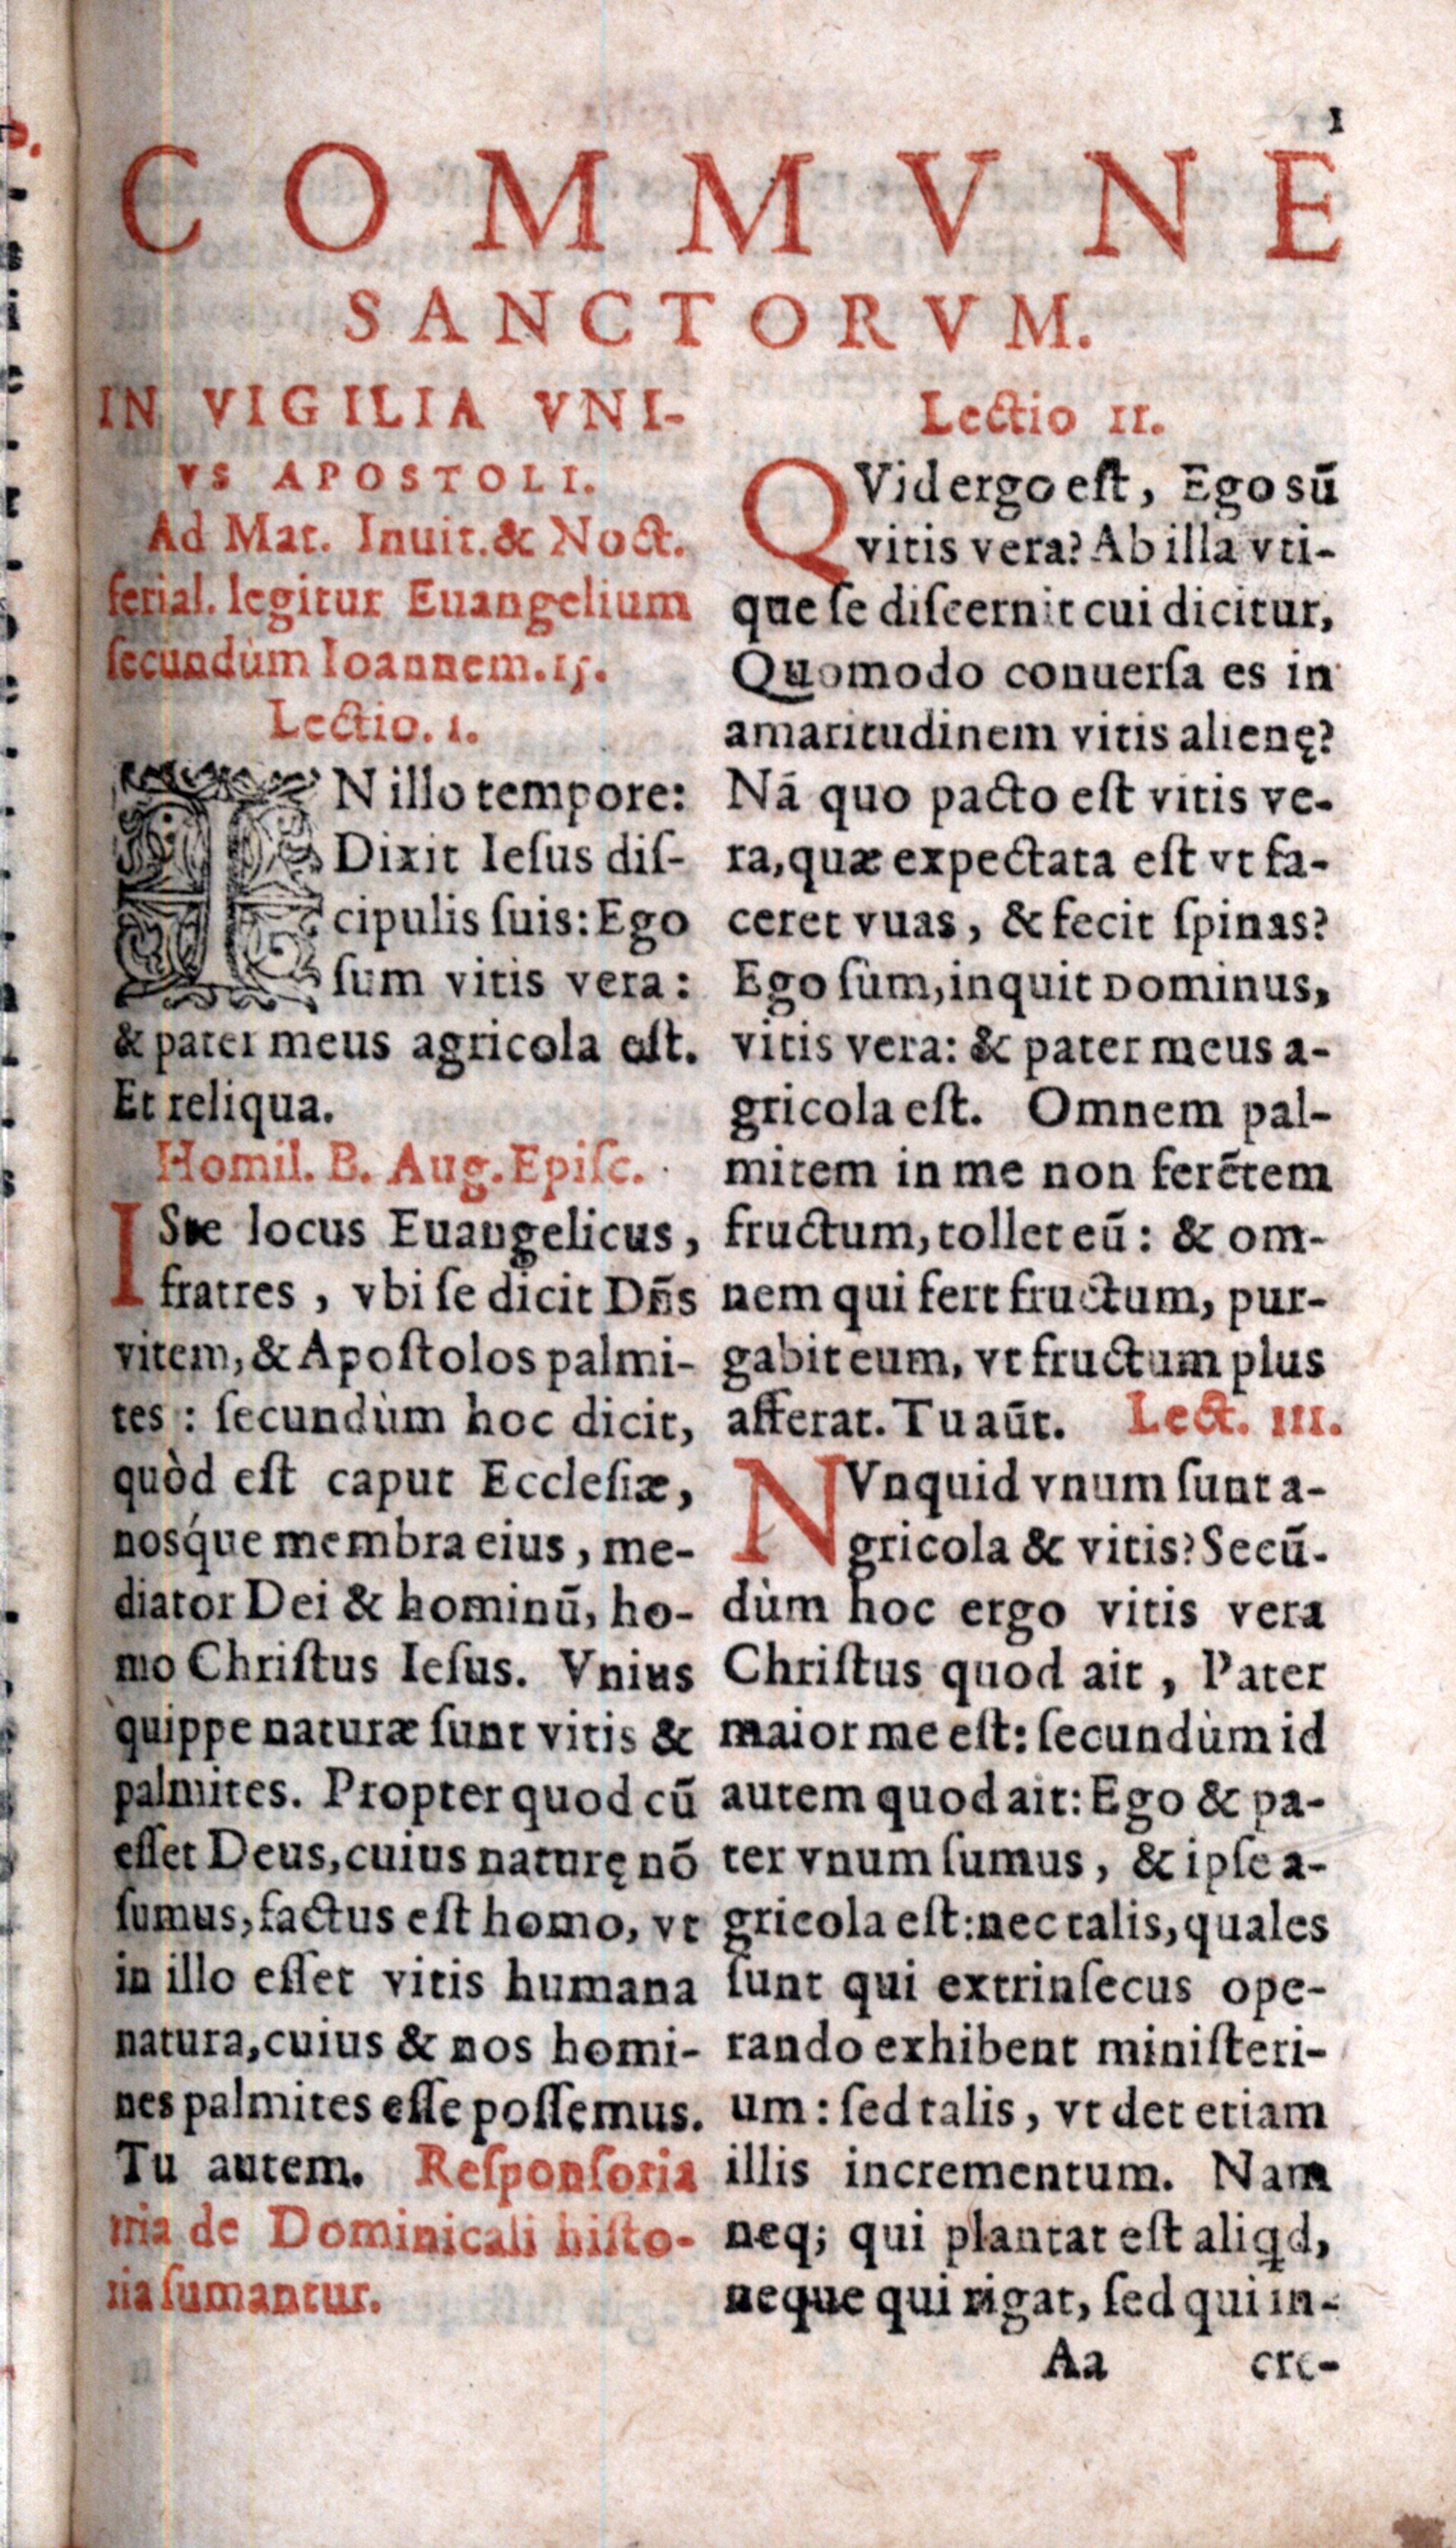 1
COMMVNE
SANCTORVM.
IN VIGILIA VNI-
VS APOSTOLI.
Ad Mat. Inuit. & Noct.
ferial. legitur Euangelium
ſecundùm Ioannem. 15.
Lectio. 1.
IN illo tempore:
Dixit Ieſus diſ-
cipulis ſuis: Ego
ſum vitis vera:
& pater meus agricola eſt.
Et reliqua.
Homil. B. Aug. Epiſc.
ISte locus Euangelicus,
fratres, vbi ſe dicit Dn̄s
vitem, & Apoſtolos palmi-
tes: ſecundùm hoc dicit,
quòd eſt caput Eccleſiæ,
nosq́ue membra eius, me-
diator Dei & hominū, ho-
mo Chriſtus Ieſus. Vnius
quippe naturæ ſunt vitis &
palmites. Propter quod cū
eſſet Deus, cuius naturę nō
ſumus, factus eſt homo, vt
in illo eſſet vitis humana
natura, cuius & nos homi-
nes palmites eſſe poſſemus.
Tu autem. Reſponſoria
ria de Dominicali hiſto-
ria ſumantur.
Lectio II.
QVid ergo eſt, Ego sū
vitis vera? Ab illa vti-
que ſe diſcernit cui dicitur,
Quomodo conuerſa es in
amaritudinem vitis alienę?
Nā quo pacto eſt vitis ve-
ra, quæ expectata eſt vt fa-
ceret vuas, & fecit ſpinas?
Ego ſum, inquit Dominus,
vitis vera: & pater meus a-
gricola eſt. Omnem pal-
mitem in me non ferētem
fructum, tollet eū: & om-
nem qui fert fructum, pur-
gabit eum, vt fructum plus
afferat. Tu aūt. Lect. III.
NVnquid vnum ſunt a-
gricola & vitis? Secū-
dùm hoc ergo vitis vera
Chriſtus quod ait, Pater
maior me eſt: ſecundùm id
autem quod ait: Ego & pa-
ter vnum ſumus, & ipſe a-
gricola eſt: nec talis, quales
ſunt qui extrinſecus ope-
rando exhibent miniſteri-
um: ſed talis, vt det etiam
illis incrementum. Nam
neq; qui plantat eſt aliqd,
neque qui rigat, ſed qui in-
Aa cre-